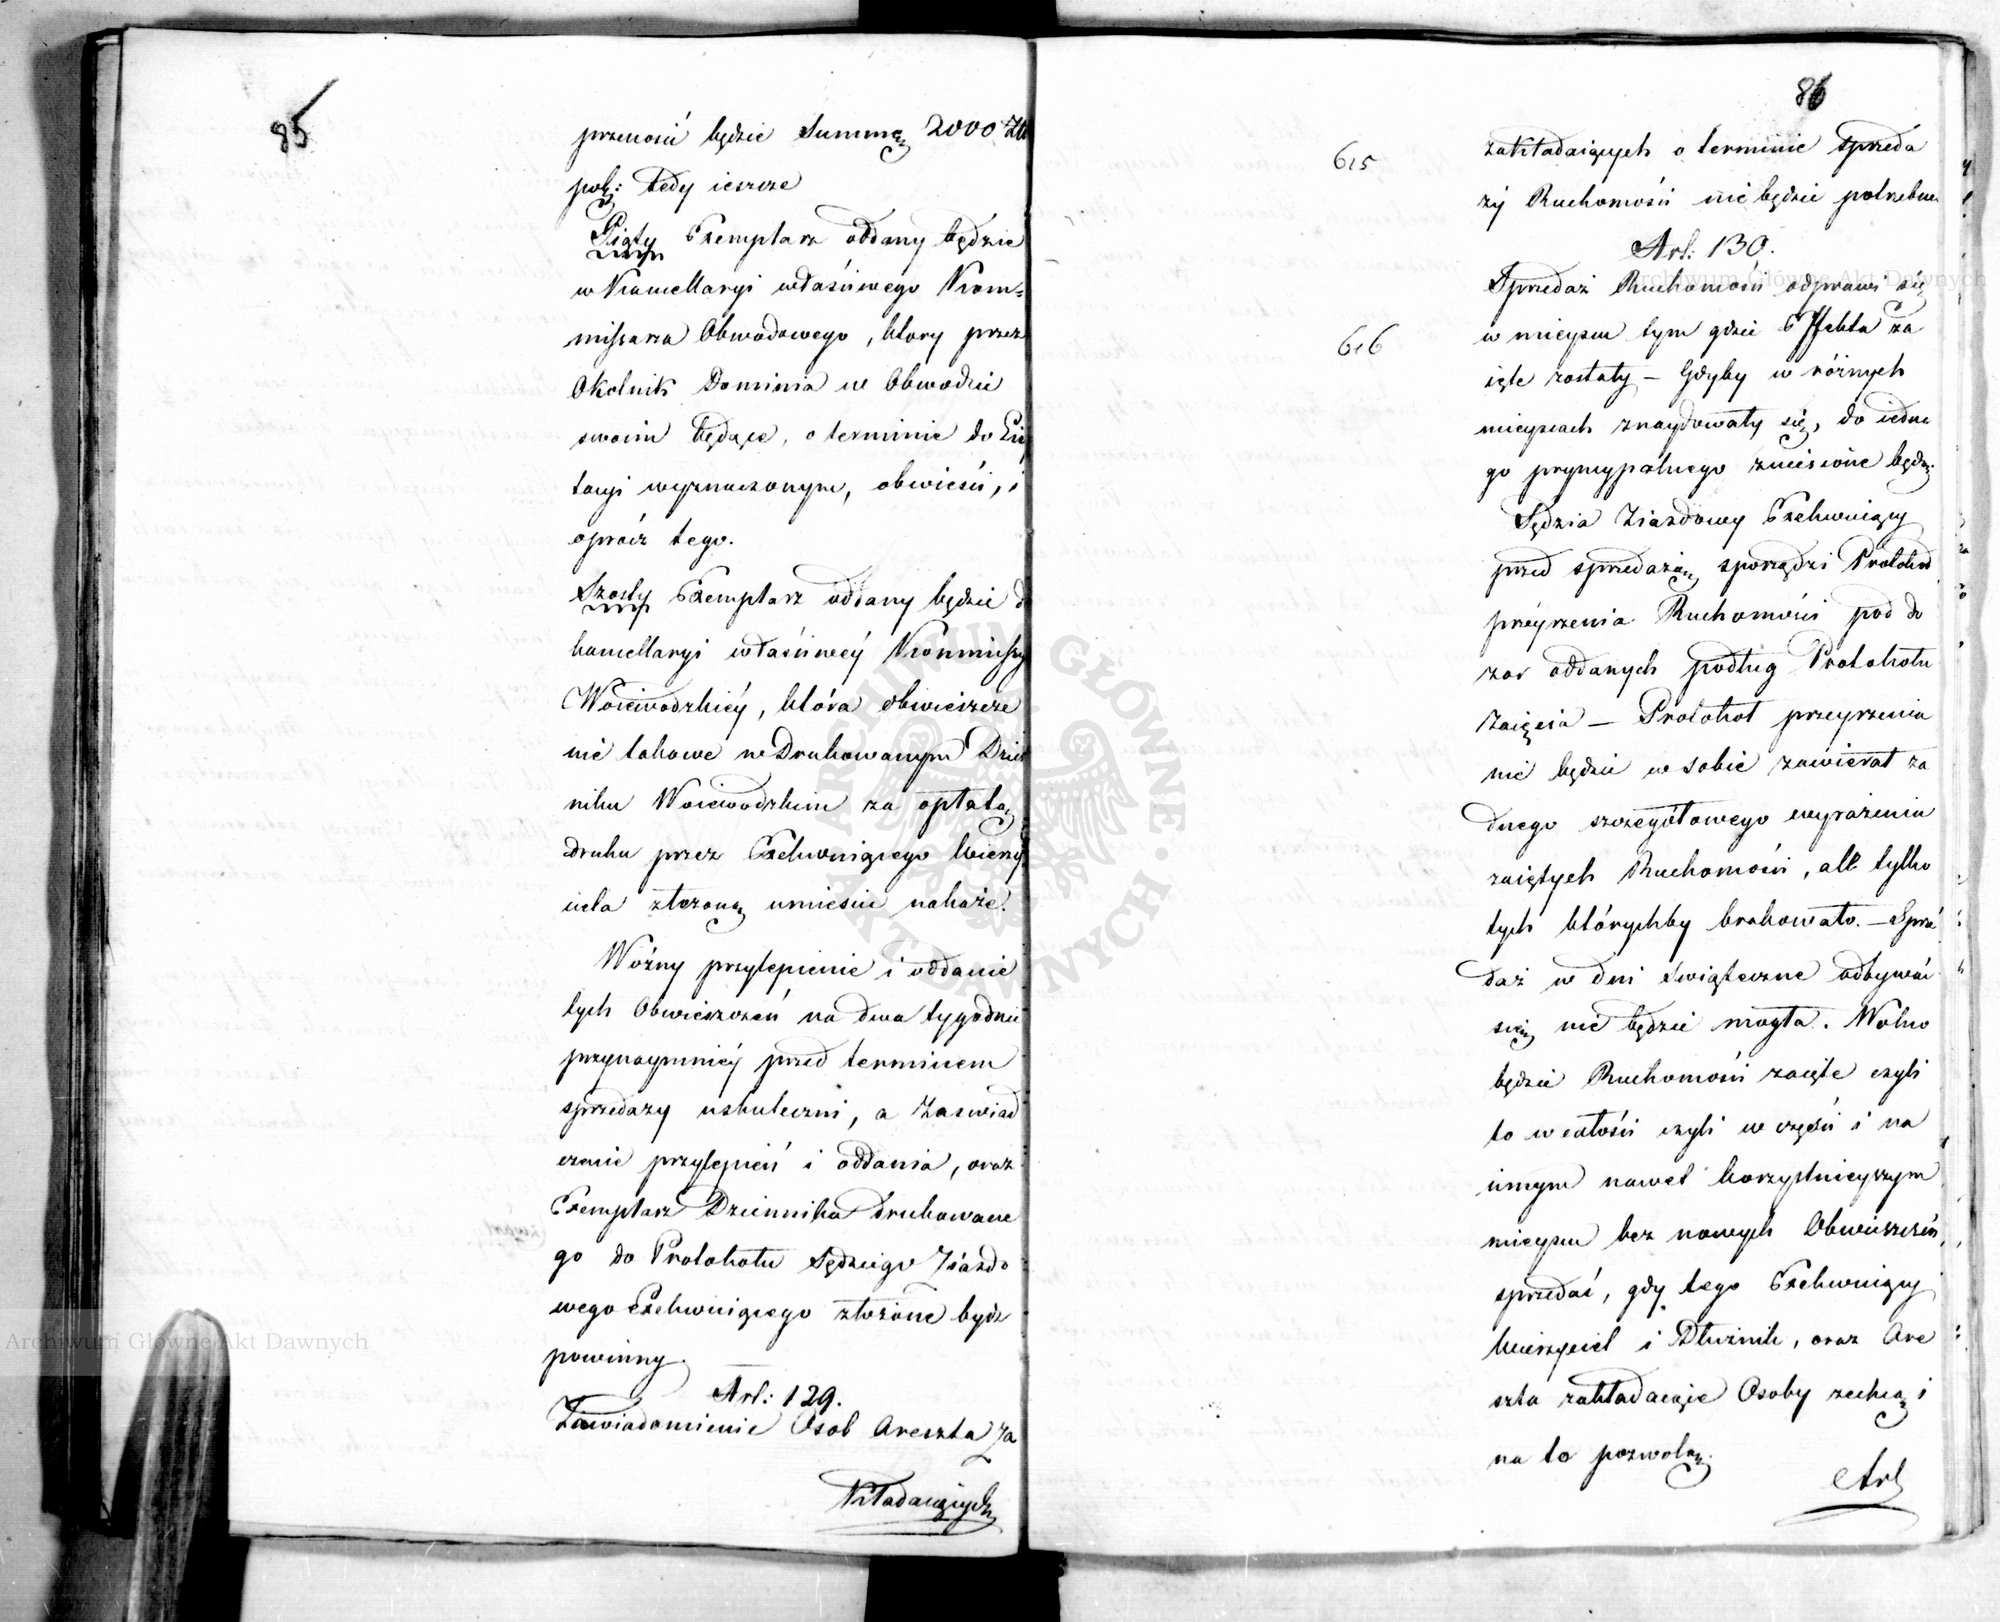 85
przenosić będzie Summę 2000 Złt
pol: tedy ieszcze
Piąty Exemplarz oddany będzie
w Kancellaryi właściwego Kom=
missarza Obwodowego, ktory przez
Okolnik Dominia w Obwodzie
swoim będące, o terminie do Licy
tacyi wyznaczonym, obwieści, i
oprócz tego.
Szosty Exemplarz oddany będzie do
kancellaryi właściwey Kommissyi
Woiewodzkiéy, która obwieszcze
nie takowe w Drukowanym Dzien
niku Woiewodzkim za opłatą
druku przez Exekwuiącego Wierzy
ciela złożoną umieścić nakaże.
Woźny przylepienie i oddanie
tych Obwieszczeń na dwa tygodnie
przynaymniéy przed terminem
sprzedaży uskuteczni, a Zaswiad
czenie przylepień i oddania, oraz
Exemplarz Dziennika drukowane
go do Protokołu Sędziego Ziazdo
wego Exekwuiącego złożone bydź
powinny.
Art: 129.
Zawiadomienie Osob Areszta Za
Kładaiących
86
615
zakładaiących o terminie sprzeda
ży Ruchomości nie będzie potrzebne
Art: 130.
Sprzedaż Ruchomości odprawi się
616
w mieyscu tym gdzie Effekta za
ięte zostały – Gdyby w różnych
mieyscach znaydowały się, do iedne
go pryncypalnego zniesione będą.
Sędzia Ziazdowy Exekwuiący
przed sprzedażą sporządzi Protokuł
przéyrzenia Ruchomości pod do
zor oddanych podług Protokołu
Zaięcia – Protokoł przeyrzenia
nie będzie w sobie zawierał ża
dnego szczegółowego wyrażenia
zaiętych Ruchomości, ale tylko
tych którychby brakowało. – Sprze
daż w dni świąteczne odbywać
się nie będzie mogła. Wolno
będzie Ruchomości zaięte czyli
to w całości czyli w części i na
innym nawet korzystnieyszym
mieyscu bez nowych Obwieszczeń,
sprzedać, gdy tego Exekwuiący
Wierzyciel i Dłużnik, oraz Are
szta zakładaiące Osoby zechcą i
na to pozwolą.
Art